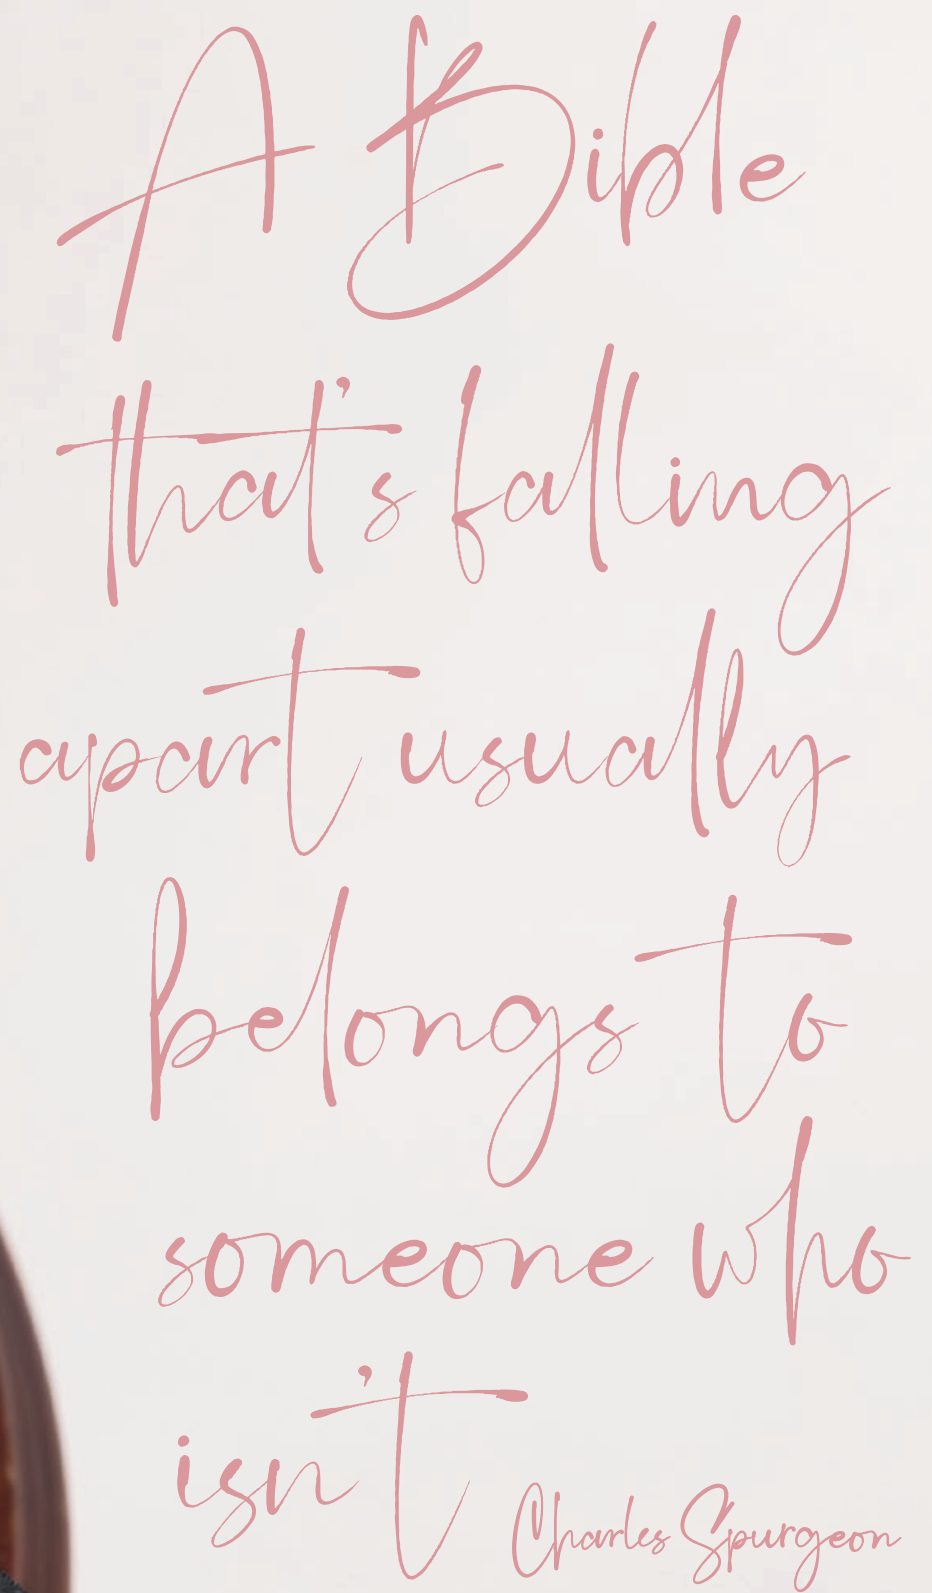 A Bible
that's falling
apart usually
belongs to
someone who
isn't
Charles Spurgeon